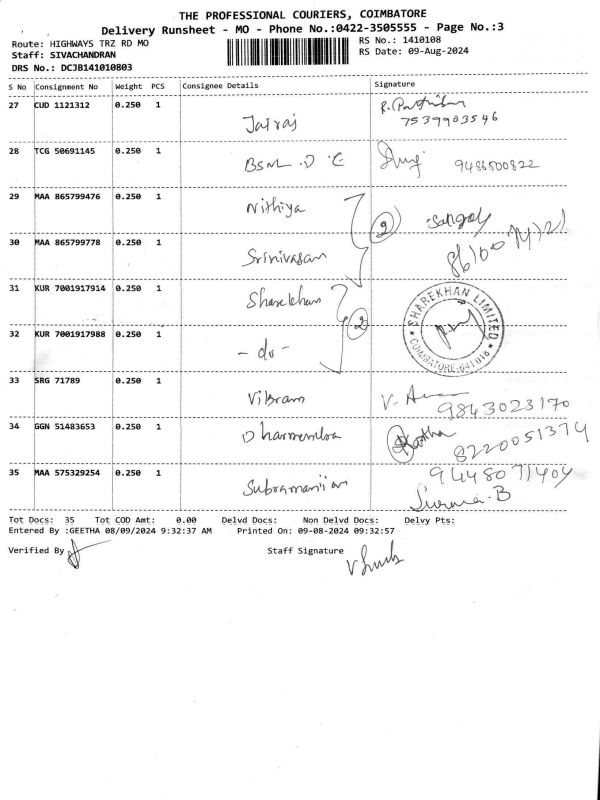 THE PROFESSIONAL COURIERS, COIMBATORE
Delivery Runsheet - MO - Phone No.:0422-3505555 - Page No.:3
Route: HIGHWAYS TRZ RD MO RS No.: 1410108
Staff: SIVACHANDRAN RS Date: 09-Aug-2024
DRS No.: DCJB141010803
S No Consignment No Weight PCS Consignee Details Signature
27 CUD 1121312 0.250 1 Jairaj
7539903546
28 TCG 50691145 0.250 1 BSNL D E 9486500822
29 MAA 865799476 0.250 1 Nithiya
2
30 MAA 865799778 0.250 1 Srinivasan
31 KUR 7001917914 0.250 1 Sharekhan
2
SHAREKHAN LIMITED
COIMBATORE-641018
32 KUR 7001917988 0.250 1 - do -
33 SRG 71789 0.250 1 Vikram 9843023170
34 GGN 51483653 0.250 1 Dharmendra
8220051374
35 MAA 575329254 0.250 1 Subramaniian 9448071404
Tot Docs: 35 Tot COD Amt: 0.00 Delvd Docs: Non Delvd Docs: Delvy Pts:
Entered By :GEETHA 08/09/2024 9:32:37 AM Printed On: 09-08-2024 09:32:57
Verified By Staff Signature